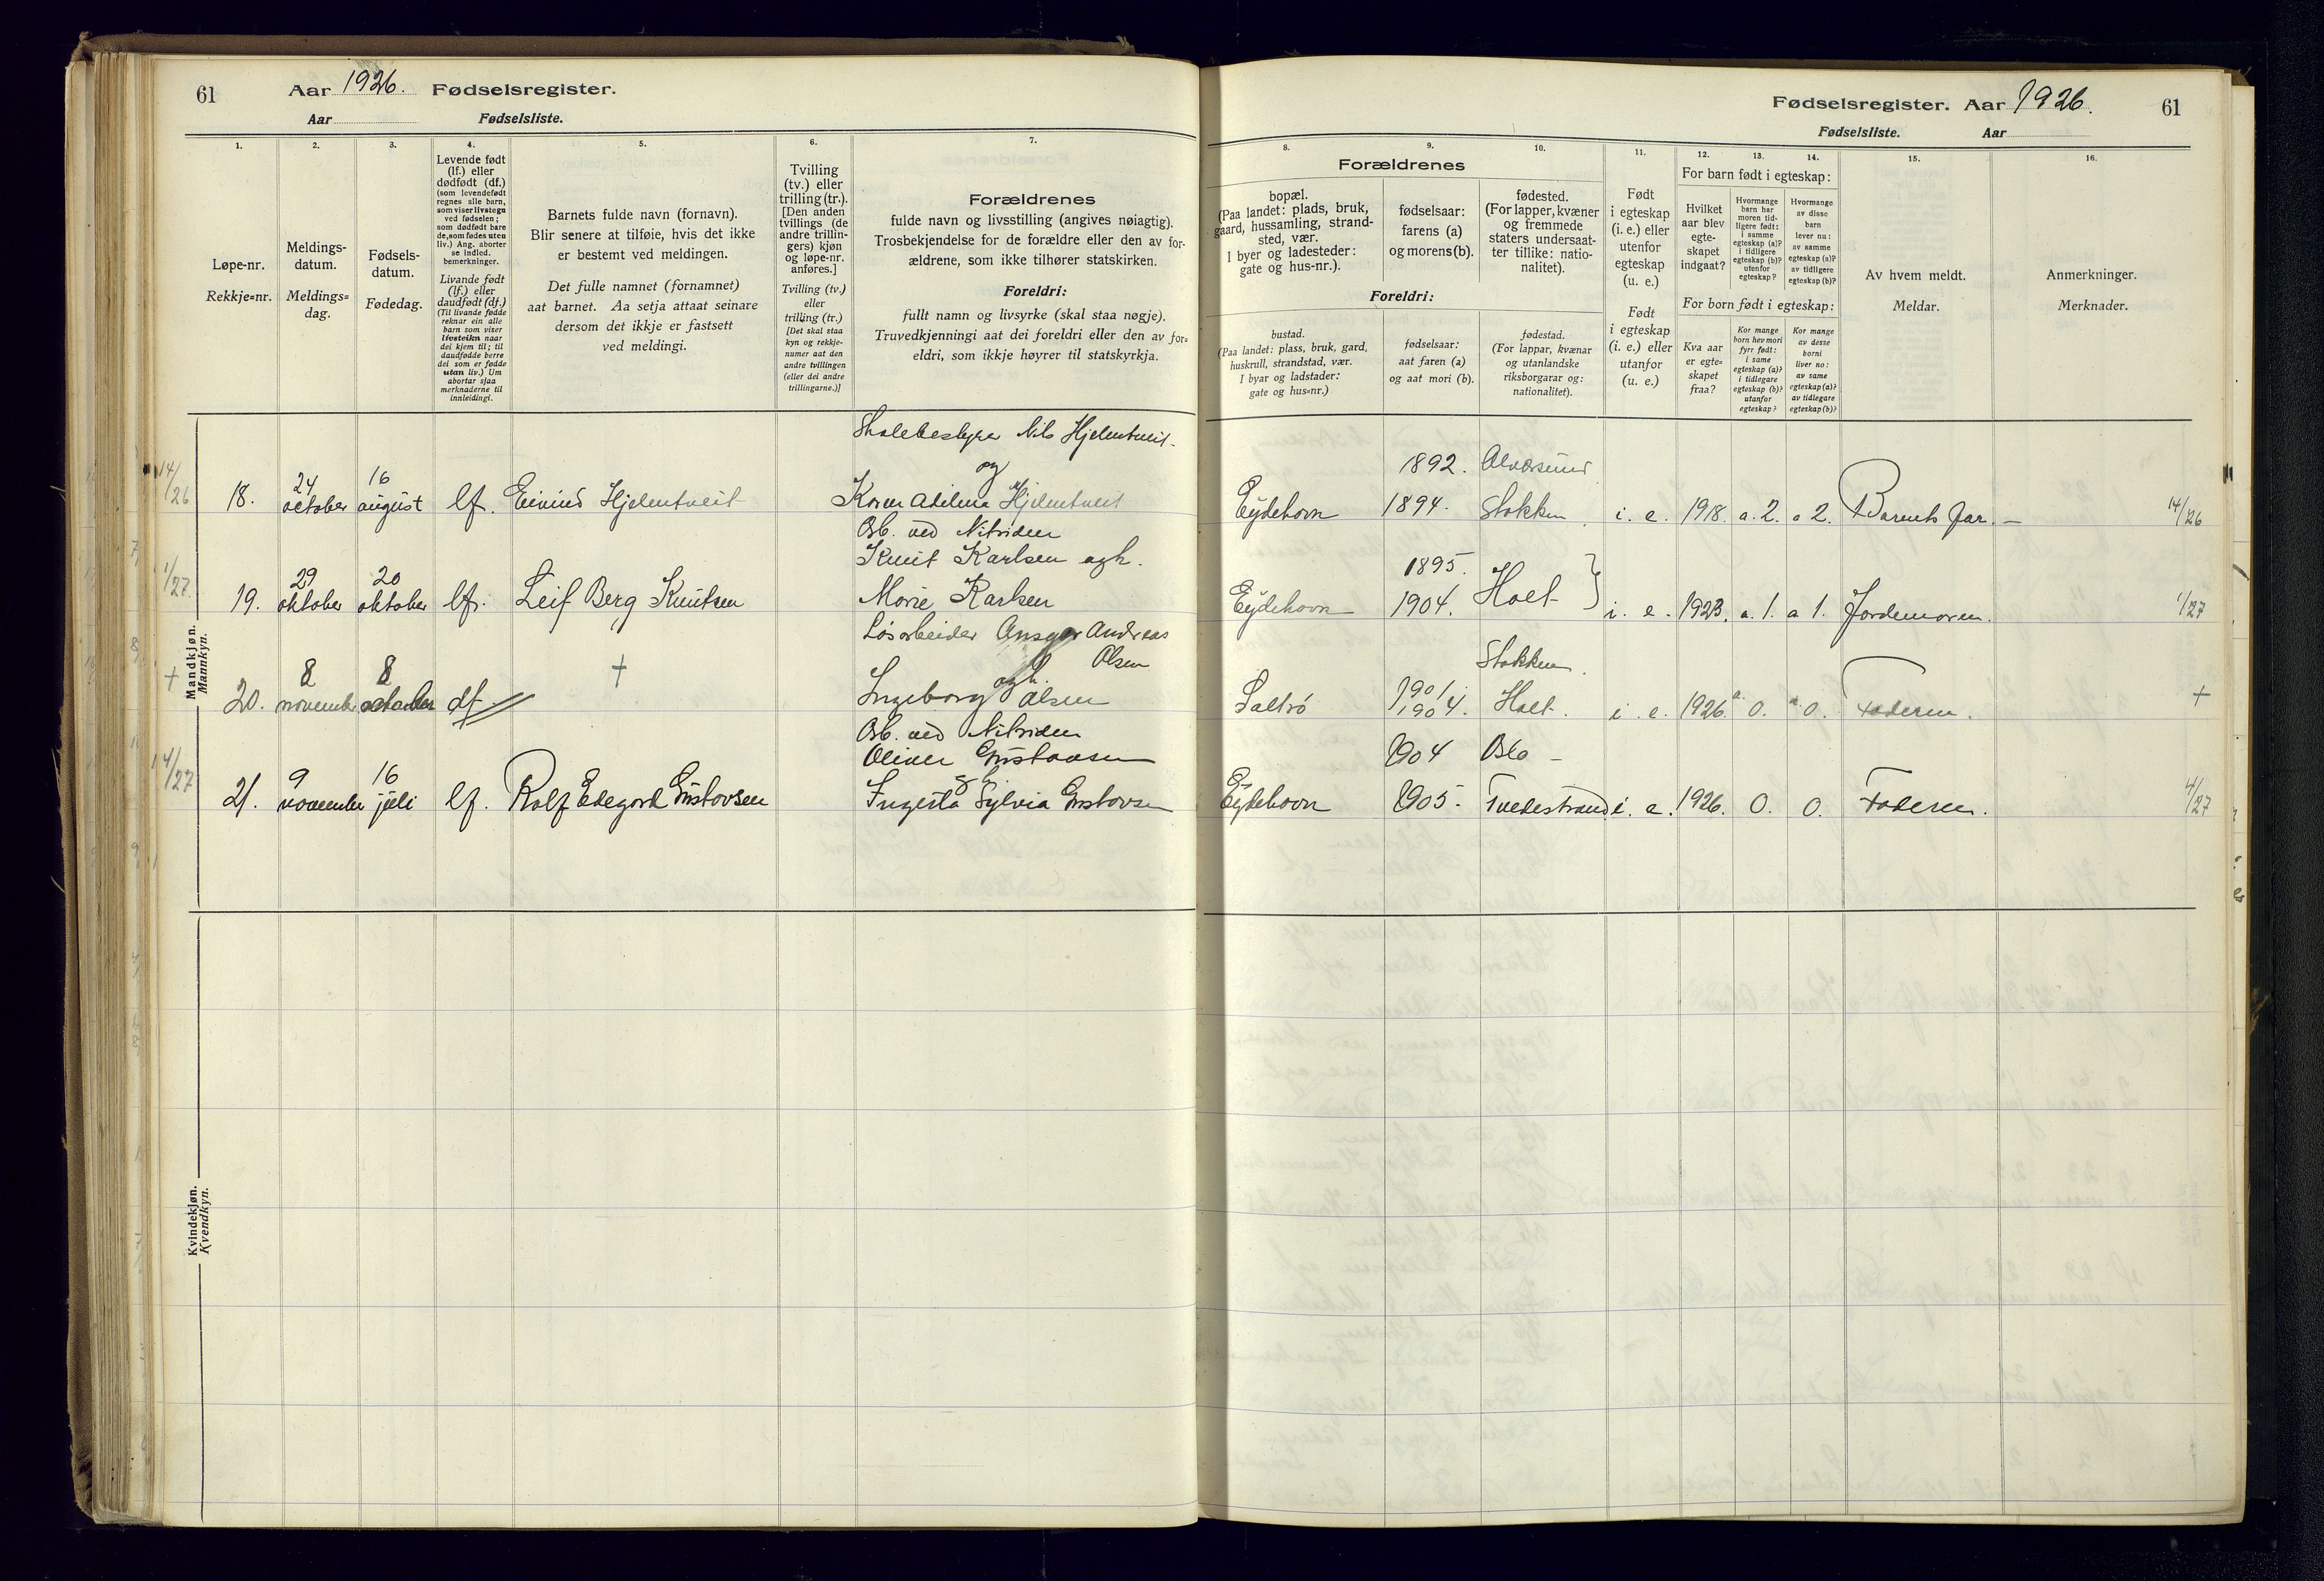 61 Aar 1926. Fødselsregister.
Aar Fødselsliste.
Fødselsregister. Aar 1926. 61
Fødselsliste. Aar
1. 2. 3. 4. 5. 6. 7.
Løpe-nr.
Rekkje=nr.
Meldings-
datum.
Meldings=
dag.
Fødsels-
datum.
Fødedag.
Levende født
(lf.) eller
dødfødt (df.)
(som levendefødt
regnes alle barn,
som viser livstegn
ved fødselen;
som dødfødt bare
de, som fødes uten
liv.) Ang. aborter
se indled.
bemerkninger.
Livande født
(lf.) eller
daudfødt (df.)
(Til livande fødde
reknar ein alle
barn som viser
livsteikn naar
dei kjem til; til
daudfødde berre
dei som er fødde
utan liv.) Um
abortar sjaa
merknaderne til
innleidingi.
Barnets fulde navn (fornavn).
Blir senere at tilføie, hvis det ikke
er bestemt ved meldingen.
Det fulle namnet (fornamnet)
aat barnet. Aa setja attaat seinare
dersom det ikkje er fastsett
ved meldingi.
Tvilling
(tv.) eller
trilling (tr.).
[Den anden
tvillings (de
andre trillin-
gers) kjøn
og løpe-nr.
anføres.]
Tvilling (tv.)
eller
trilling (tr.)
[Det skal staa
kyn og rekkje-
numer aat den
andre tvillingen
(eller dei andre
trillingarne.)]
Forældrenes
fulde navn og livsstilling (angives nøiagtig).
Trosbekjendelse for de forældre eller den av for-
ældrene, som ikke tilhører statskirken.
Foreldri:
fullt namn og livsyrke (skal staa nøgje).
Truvedkjenningi aat dei foreldri eller den av for=
eldri, som ikkje høyrer til statskyrkja.
8. 9. 10. 11. 12. 13. 14. 15. 16.
Forældrenes
bopæl.
(Paa landet: plads, bruk,
gaard, hussamling, strand-
sted, vær.
I byer og ladesteder:
gate og hus-nr.).
fødselsaar:
farens (a)
og morens (b).
fødested.
(For lapper, kvæner
og fremmede
staters undersaat-
ter tillike: natio-
nalitet).
Foreldri:
bustad.
(Paa landet: plass, bruk, gard,
huskrull, strandstad, vær.
I byar og ladstader:
gate og hus=nr.)
fødselsaar:
aat faren (a)
og aat mori (b).
fødestad.
(For lappar, kvænar
og utanlandske
riksborgarar og:
nationalitet).
Født
i egteskap
(i. e.) eller
utenfor
egteskap
(u. e.)
Født
i egteskap
(i. e.) eller
utanfor
(u. e.)
For barn født i egteskap:
Hvilket
aar blev
egte-
skapet
indgaat?
Hvormange
barn har
moren tid-
ligere født:
i samme
egteskap (a)?
i tidligere
egteskap (b)?
utenfor
egteskap?
Hvormange
av disse
barn
lever nu:
av samme
egteskap (a)?
av tidligere
egteskap (b)?
For born født i egteskap:
Kva aar
er egte=
skapet
fraa?
Kor mange
born hev mori
fyrr født:
i same
egteskap (a)?
i tidlegare
egteskap (b)?
utanfor
egteskap?
Kor mange
av desse
borni
liver no:
av same
egteskap (a)?
av tidlegare
egteskap (b)?
Av hvem meldt.
Meldar.
Anmerkninger.
Merknader.
Mandkjøn.
Mannkyn.
Skolebestyrer Nils Hjelmtveit.
og
14/26 18. 24 october 16 august lf. Eivind Hjelmtveit Karen Adeline Hjelmtveit
1892. Alversund
Eydehavn 1894. Stokken. i. e. 1918. a. 2. a 2. Barnets far. – 14/26
Arb. ved Nitriden
Knut Karlsen og h.
1/27. 19. 29 oktober 20 oktober lf. Leif Berg Knutsen Marie Karlsen
1895.
Eydehavn 1904. Holt } i. e. 1923. a. 1. a 1. Jordemoren. 1/27
Løsarbeider Ansgar Andreas
Olsen
og h.
+ 20. 8 november 8 october df. + Ingeborg Olsen
Stokken.
Saltrø 1901. 1904. Holt. i. e. 1926. a. 0. a. 0. Faderen. +
Arb. ved Nitriden
Oliver Gustavsen
og h.
14/27 21. 9 november 16 juli lf. Rolf Edegard Gustavsen Ingerta Sylvia Gustavsen
1904 Oslo –
Eydehavn 1905. Tvedestrand i. e. 1926. 0. 0. Faderen. 4/27
Kvindekjøn.
Kvendkyn.